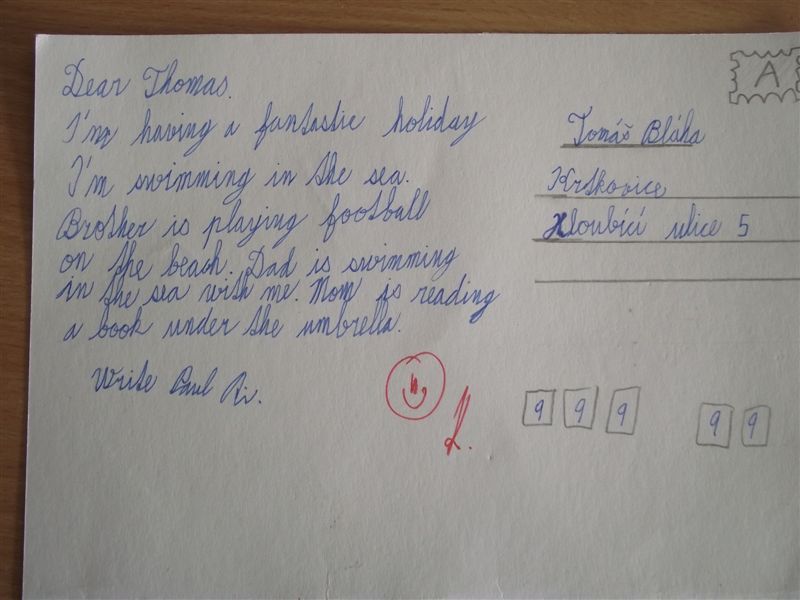 Dear Thomas.
I'm having a fantastic holiday
I'm swimming in the sea.
Brother is playing football
on the beach. Dad is swimming
in the sea with me. Mom is reading
a book under the umbrella.
Write Paul Ri.
A
Tomáš Bláha
Krtkovice
Hloubící ulice 5
9 9 9 9 9